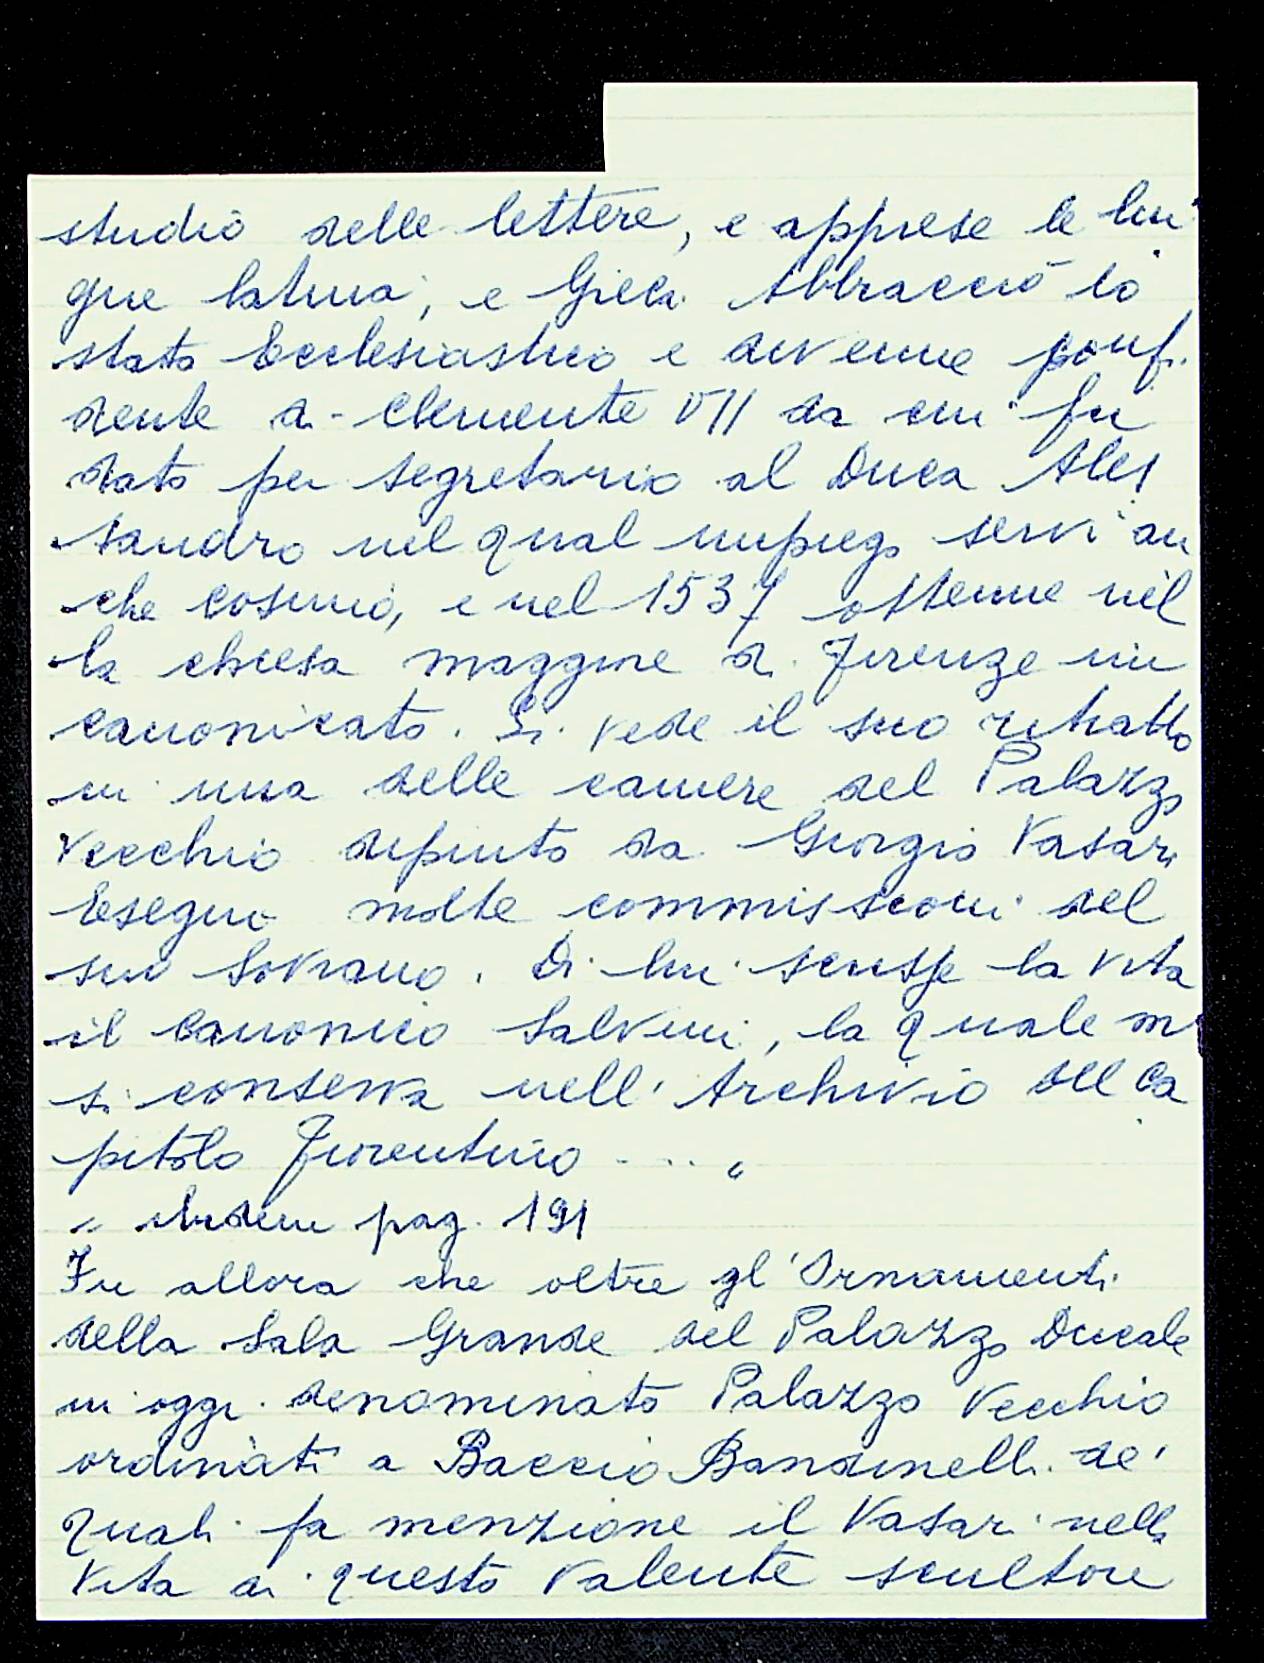 studio delle lettere, e apprese le lin
gue latina, e Greca. Abbracciò lo
stato Ecclesiastico e divenne conf.
dente di Clemente VII da cui fu
dato per segretario al Duca Ales
sandro nel qual impiego servì an
che Cosimo, e nel 1537 ottenne nel
la chiesa maggiore di Firenze un
canonicato. Si vede il suo ritratto
in una delle camere del Palazzo
Vecchio dipinto da Giorgio Vasari
Eseguì molte commissioni del
suo Sovrano. Di lui scrisse la vita
il canonico Salvini, la quale m
si conserva nell'Archivio del Ca
pitolo Fiorentino .... "
" Ibidem pag. 191
Fu allora che oltre gl'Ornamenti
della Sala Grande del Palazzo Ducale
in oggi denominato Palazzo Vecchio
ordinati a Baccio Bandinelli de'
quali fa menzione il Vasari nella
Vita di questo valente scultore